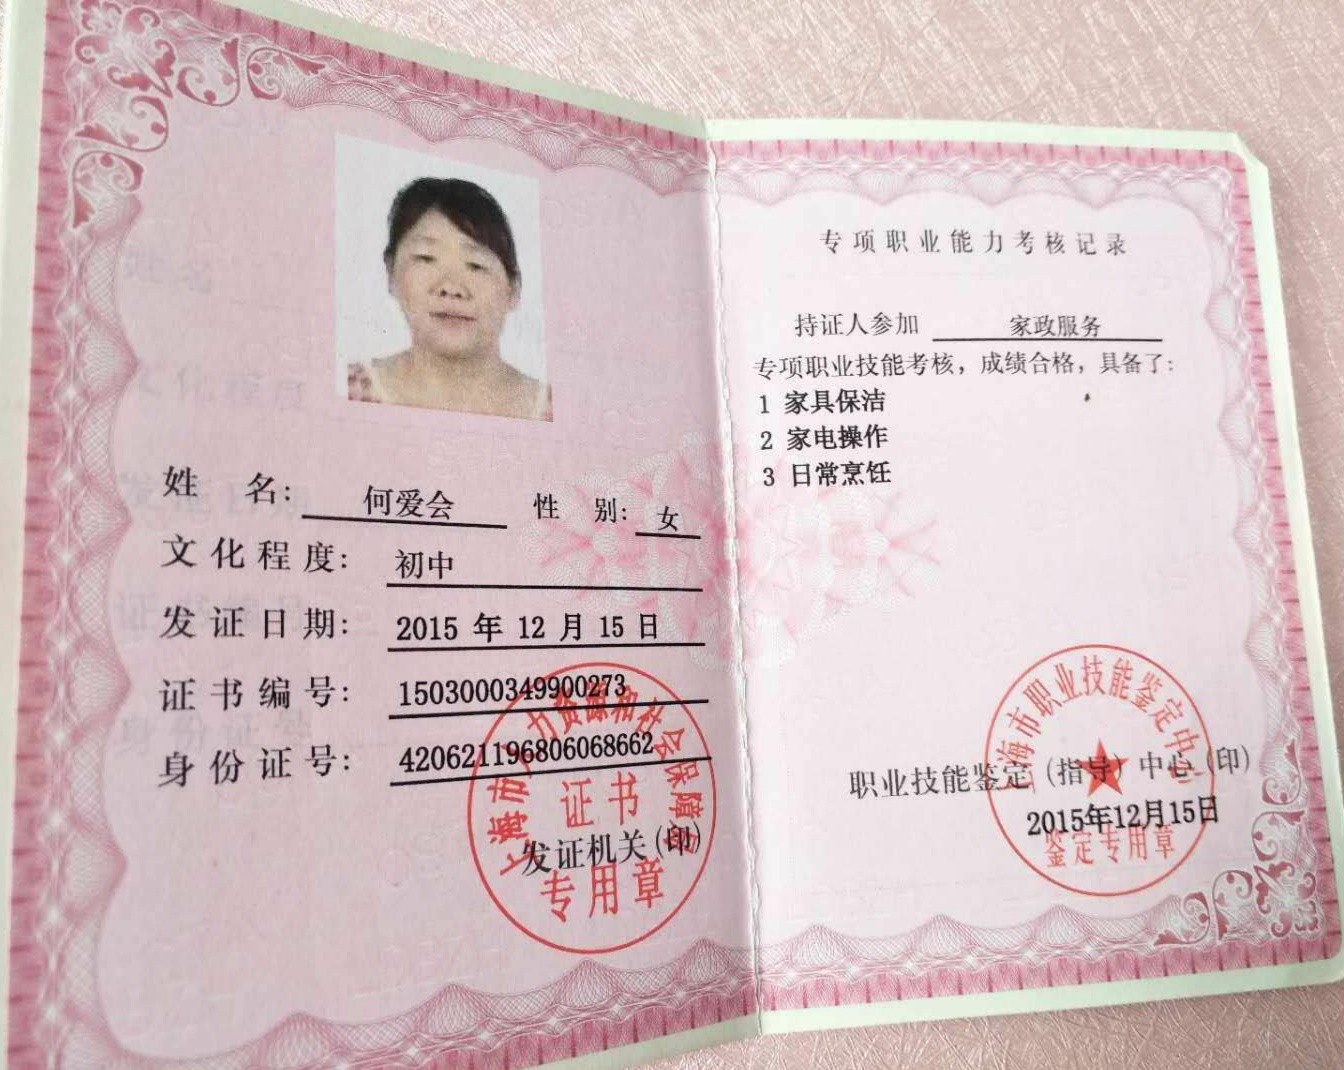 姓 名: 何爱会 性 别: 女
文化程度: 初中
发证日期: 2015 年 12 月 15 日
证书编号: 1503000349900273
身份证号: 420621196806068662
上海市人力资源和社会保障局
证书
发证机关(印)
专用章
专项职业能力考核记录
持证人参加 家政服务
专项职业技能考核，成绩合格，具备了：
1 家具保洁
2 家电操作
3 日常烹饪
上海市职业技能鉴定中心
职业技能鉴定(指导)中心(印)
2015年12月15日
鉴定专用章